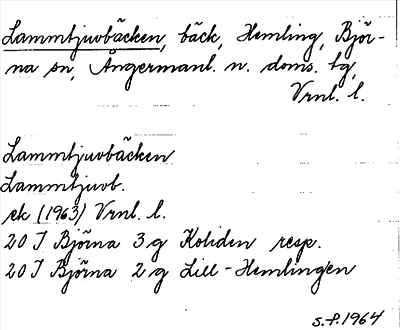 Lammtjuvbäcken, bäck, Hemling, Björ-
na sn, Ångermanl. n. doms. tg,
Vrnl. l.
Lammtjuvbäcken
Lammtjuvb.
ek (1963) Vrnl. l.
20 I Björna 3 g Koliden resp.
20 I Björna 2 g Lill-Hemlingen
S.F. 1964